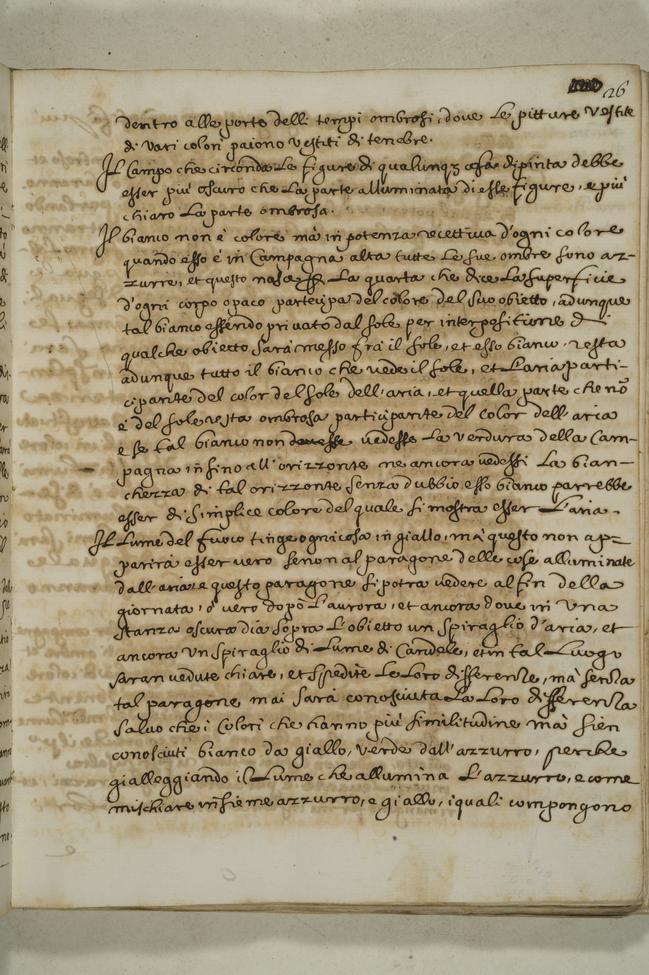 26
dentro alle porte delli tempi ombrosi, dove Le pitture Vestite
di Vari colori paiono Vestiti di tenebre.
Il Campo che circonda Le figure di qualunq; cosa dipinta debbe
esser piu' oscuro che La parte alluminata di esse figure, e piu'
chiaro La parte ombrosa.
Il bianco non è colore mà in potenza recettiva d'ogni colore
quando esso è in Campagna alta tutte Le sue ombre sono az-
zurre, et questo nasce La quarta che dice La superficie
d'ogni corpo opaco partecipa del colore del suo obietto, adunque
tal bianco essendo privato dal sole per interpositione di
qualche obietto sarà messo frà il sole, et esso bianco, resta
adunque tutto il bianco che vede il sole, et L'aria parti-
cipante del color del sole dell'aria, et quella parte che nõ
è del sole vista ombrosa participante del color dell'aria
e se tal bianco non vedesse La verdura della Cam-
pagna insino all'orizzonte ne ancora vedessi La bian-
chezza di tal orizzonte senza dubbio esso bianco parrebbe
esser di simplice colore del quale si mostra esser L'aria.
Il Lume del fuoco tinge ogni cosa in giallo, mà questo non ap-
parirà esser vero senon al paragone delle cose alluminate
dall'aria, e questo paragone si potra vedere al fin della
giornata, ò vero dopo L'aurora, et ancora dove in Una
stanza oscura dia sopra L'obietto un spiraglio d'aria, et
ancora Un spiraglio di Lume di Candele, et in tal Luogo
saran vedute chiare, et spedite Le Loro differenze, mà senza
tal paragone mai sarà conosciuta La Loro differenza
salvo che i Colori che hanno più similitudine mà sien
conosciuti bianco da giallo, verde dall'azzurro, perche
gialleggiando il Lume che allumina L'azzurro, e come
mischiare insieme azzurro, e giallo, i quali compongono